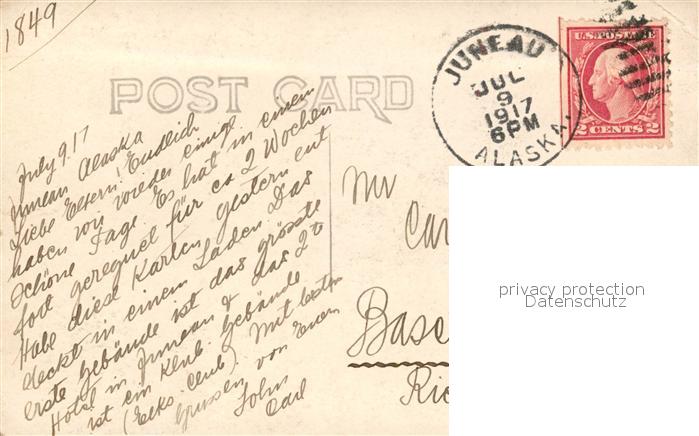 1849
POST CARD
JUNEAU
JUL
9
1917
6PM
ALASKA.
U.S. POSTAGE
2 CENTS 2
July 9. 17
Juneau Alaska
Liebe Eltern! Endlich
haben wir wieder einige
schöne Tage Es hat in einem
fort geregnet für ca 2 Wochen
Habe diese Karten gestern ent
deckt in einem Laden Das
erste gebäude ist das grösste
Hotel in Juneau & das 2te
ist ein Klub gebäude
(Elks. Club). Mit besten
Grüssen von Euer
Sohn
Carl
Mr
Car
Base
Ric
privacy protection
Datenschutz